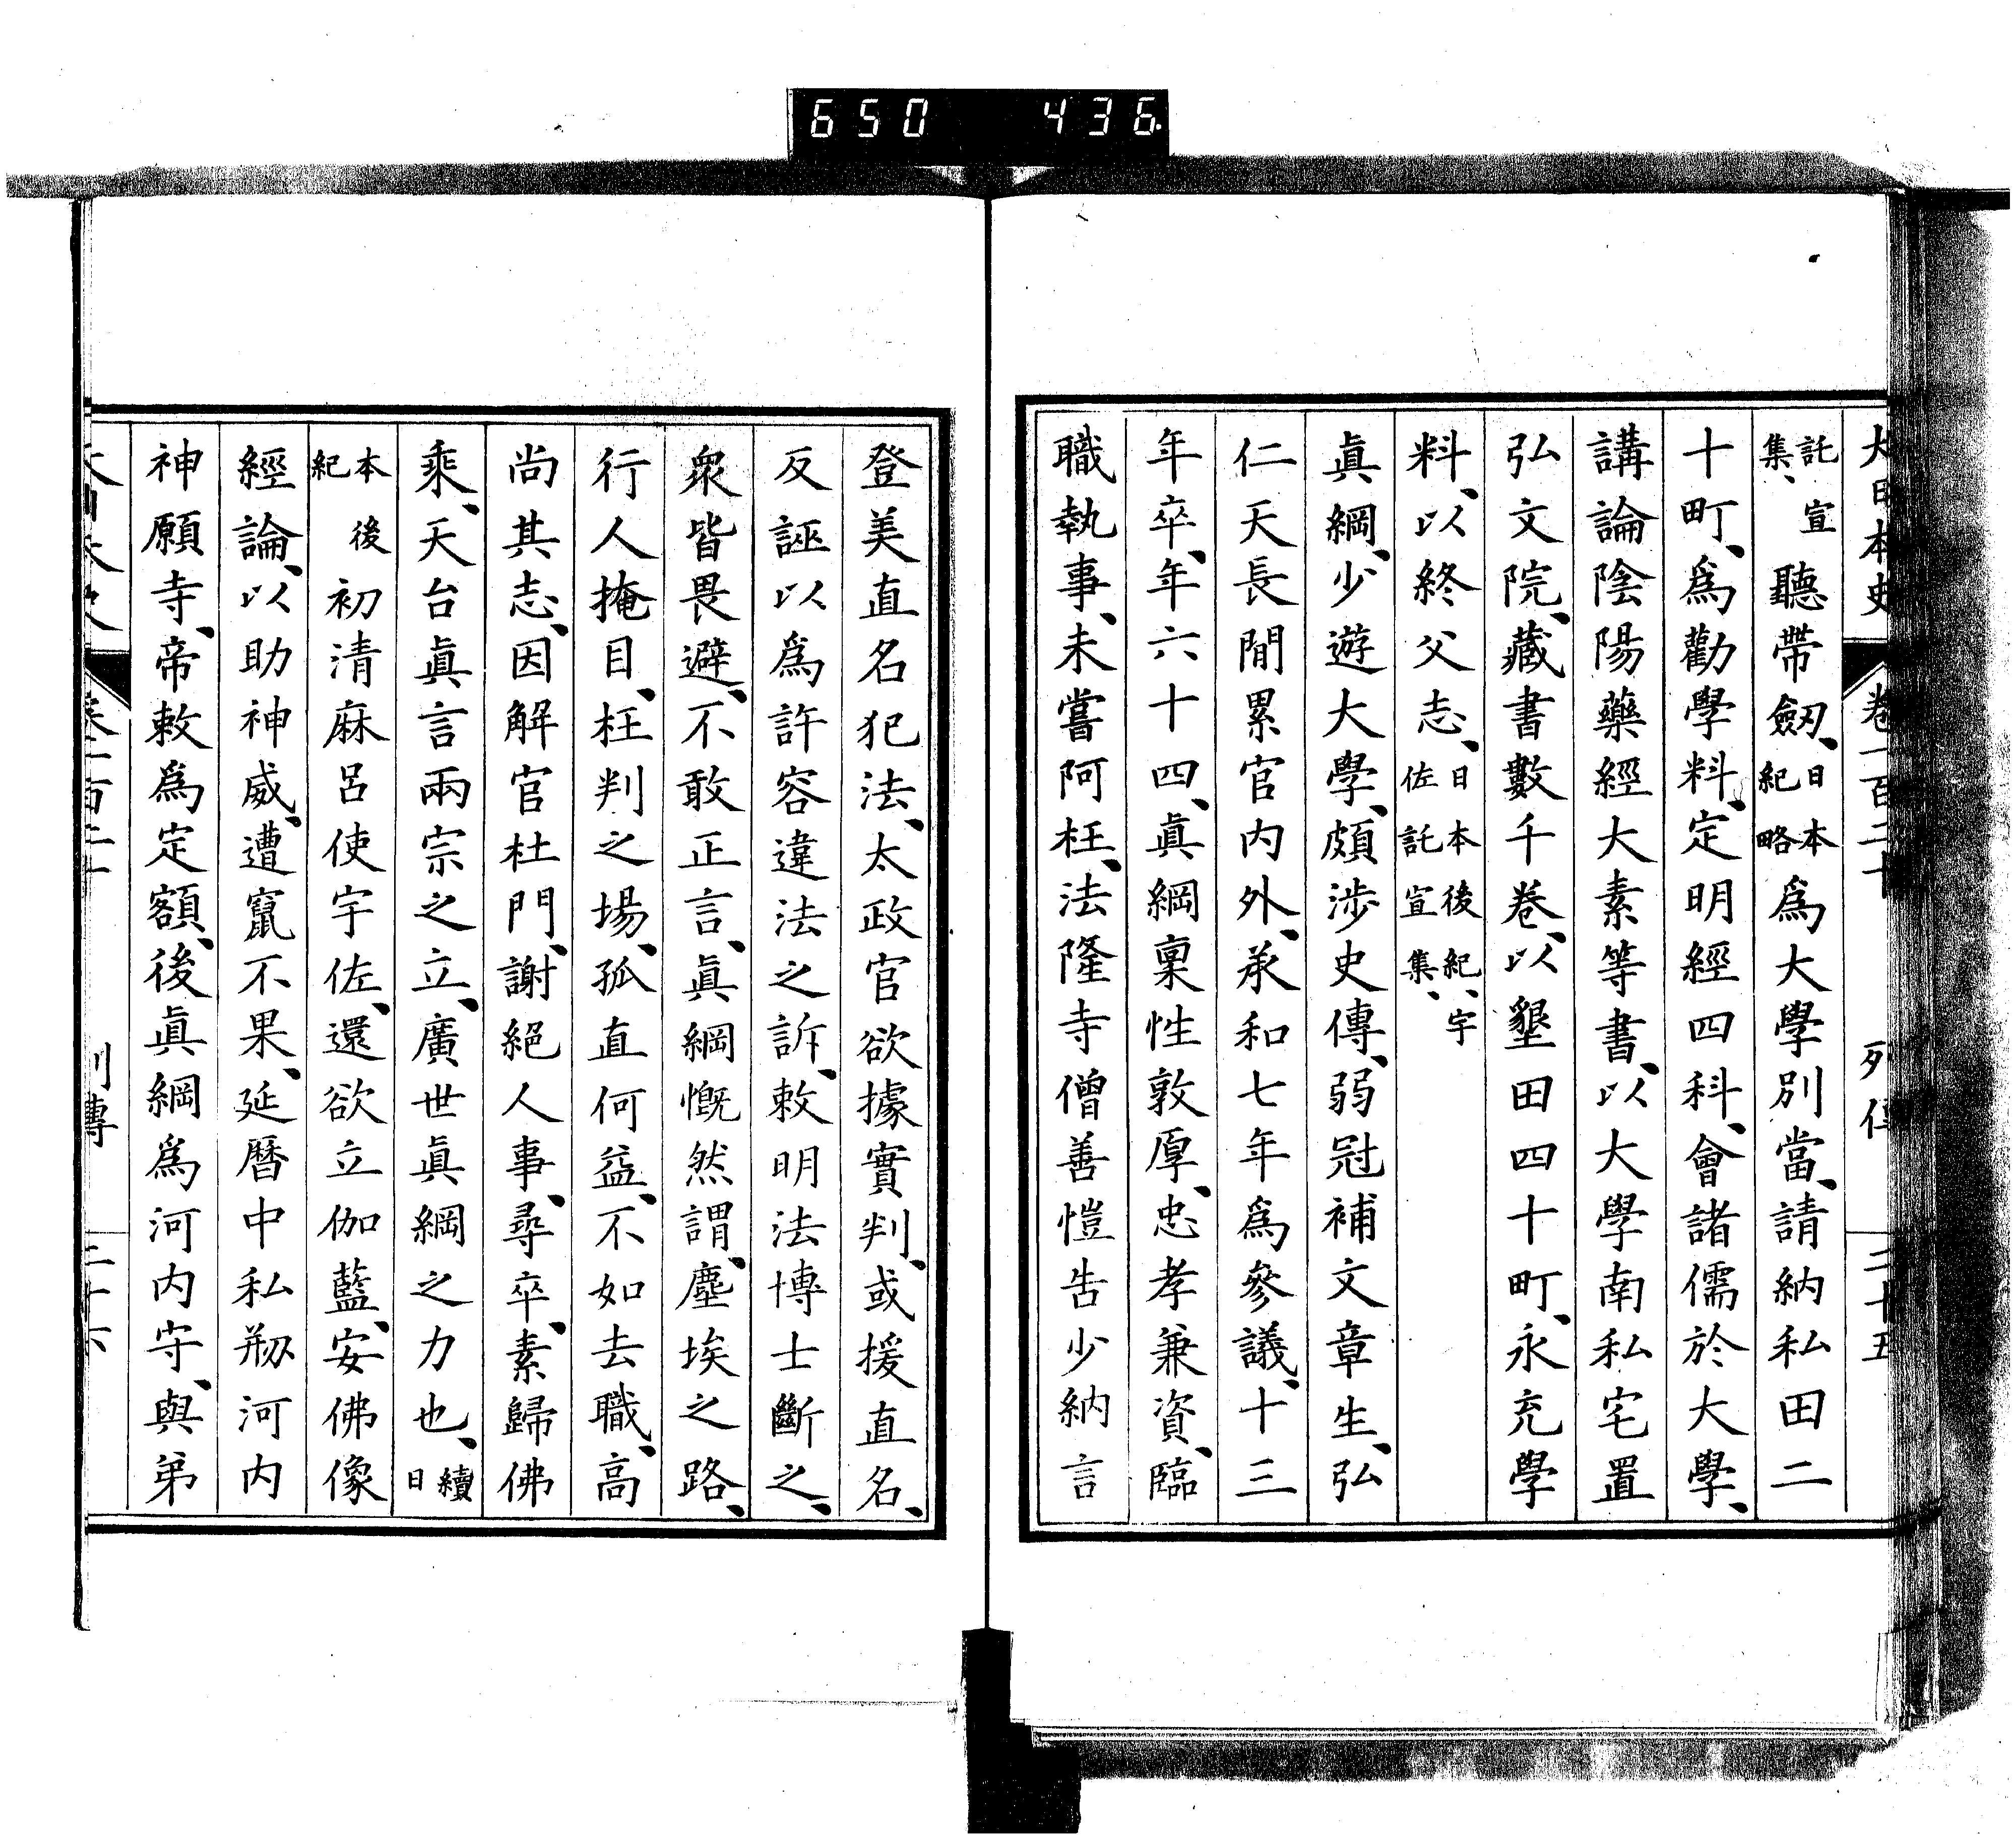 650 436
大日本史 卷一百二十 列傳 二十五
託宣集、聽帶劒、日本紀略爲大學別當、請納私田二
十町、爲勸學料、定明經四科、會諸儒於大學、
講論陰陽藥經大素等書、以大學南私宅置
弘文院、藏書數千卷、以墾田四十町、永充學
料、以終父志、日本後紀、宇佐託宣集、
眞綱、少遊大學、頗涉史傳、弱冠補文章生、弘
仁天長間累官內外、承和七年爲參議、十三
年卒、年六十四、眞綱稟性敦厚、忠孝兼資、臨
職執事、未嘗阿枉、法隆寺僧善愷告少納言
登美直名犯法、太政官欲據實判、或援直名、
反誣以爲許容違法之訴、敕明法博士斷之、
衆皆畏避、不敢正言、眞綱慨然謂、塵埃之路、
行人掩目、枉判之場、孤直何益、不如去職、高
尚其志、因解官杜門、謝絕人事、尋卒、素歸佛
乘、天台眞言兩宗之立、廣世眞綱之力也、續日
本後紀初清麻呂使宇佐、還欲立伽藍、安佛像
經論、以助神威、遭竄不果、延曆中私剏河內
神願寺、帝敕爲定額、後眞綱爲河內守、與弟
列傳